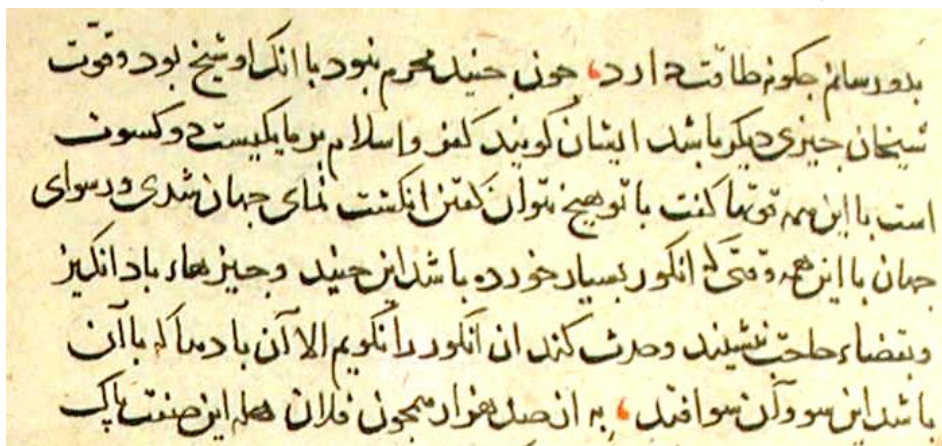 بدو رسانم چکونه طاقت دارد، جون جنید محرم نبود با انک او شیخ بود و قوت
شیخان جیزی دیکر باشد ایشان کویند کفر و اسلام بر ما یکیست دو کسوت
است با این همه قوتها کفت با تو هیچ نتوان کفتن انکشت نمای جهان شدی و رسوای
جهان با این همه وقتی که انکور بسیار خورده باشد این جنید و جیزهاء باد انکیز
و بقضاء حاجت نشیند و حدث کند ان انکور را نکویم الا آن بادها که با آن
باشد این سو و آن سو افتد، به از صد هزار همجون فلان هله این صنعت پاک